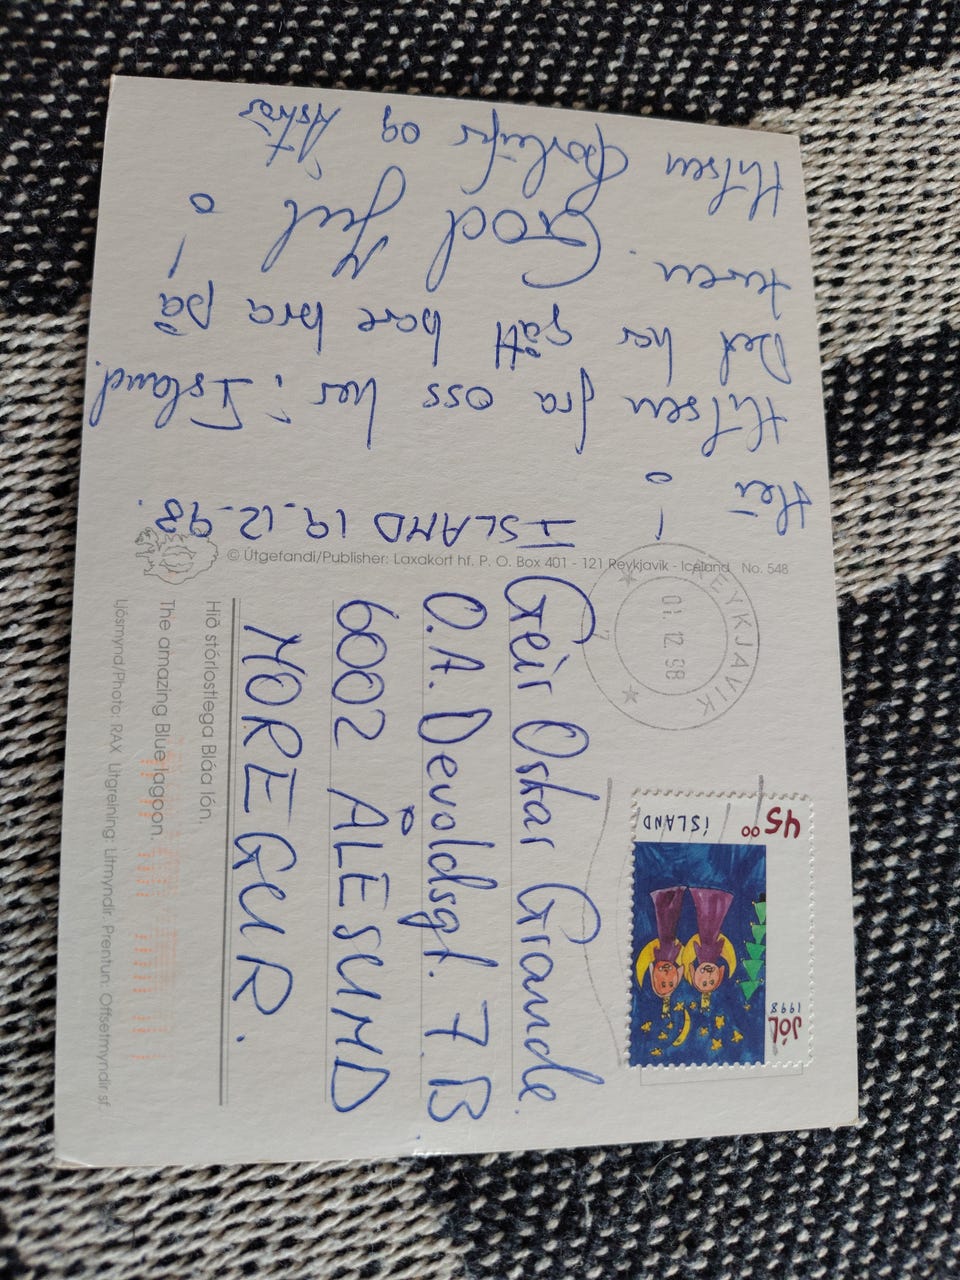 ISLAND 19.12.98.
Hei !
Hilsen fra oss her i Island.
Det har gått bare bra på
turen. God Jul !
Hilsen og
© Útgefandi/Publisher: Laxakort hf. P. O. Box 401 - 121 Reykjavik - Iceland No. 548
REYKJAVIK
01. 12. 98
JÓL
1998
ÍSLAND
4500
Geir Oskar Grande.
O.A. Devoldsgt. 7 B.
6002 ÅLESUND
NOREGUR.
Hið stórlostlega Bláa lón.
The amazing Blue lagoon.
Ljósmynd/Photo: RAX Litgreining: Litmyndir. Prentun: Offsetmyndir sf.